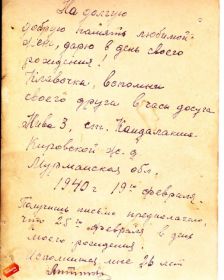 На долгую
добрую память любимой
дарю в день своего
рождения!
Клавочка, вспомни
своего друга в часы досуга
Нива 3, ст. Кандалакша
Кировской ж. д.
Мурманская обл.
1940 г 19го февраля.
Получишь письмо предполагаю,
что 25го февраля в день
моего рождения
исполнится мне 26 лет